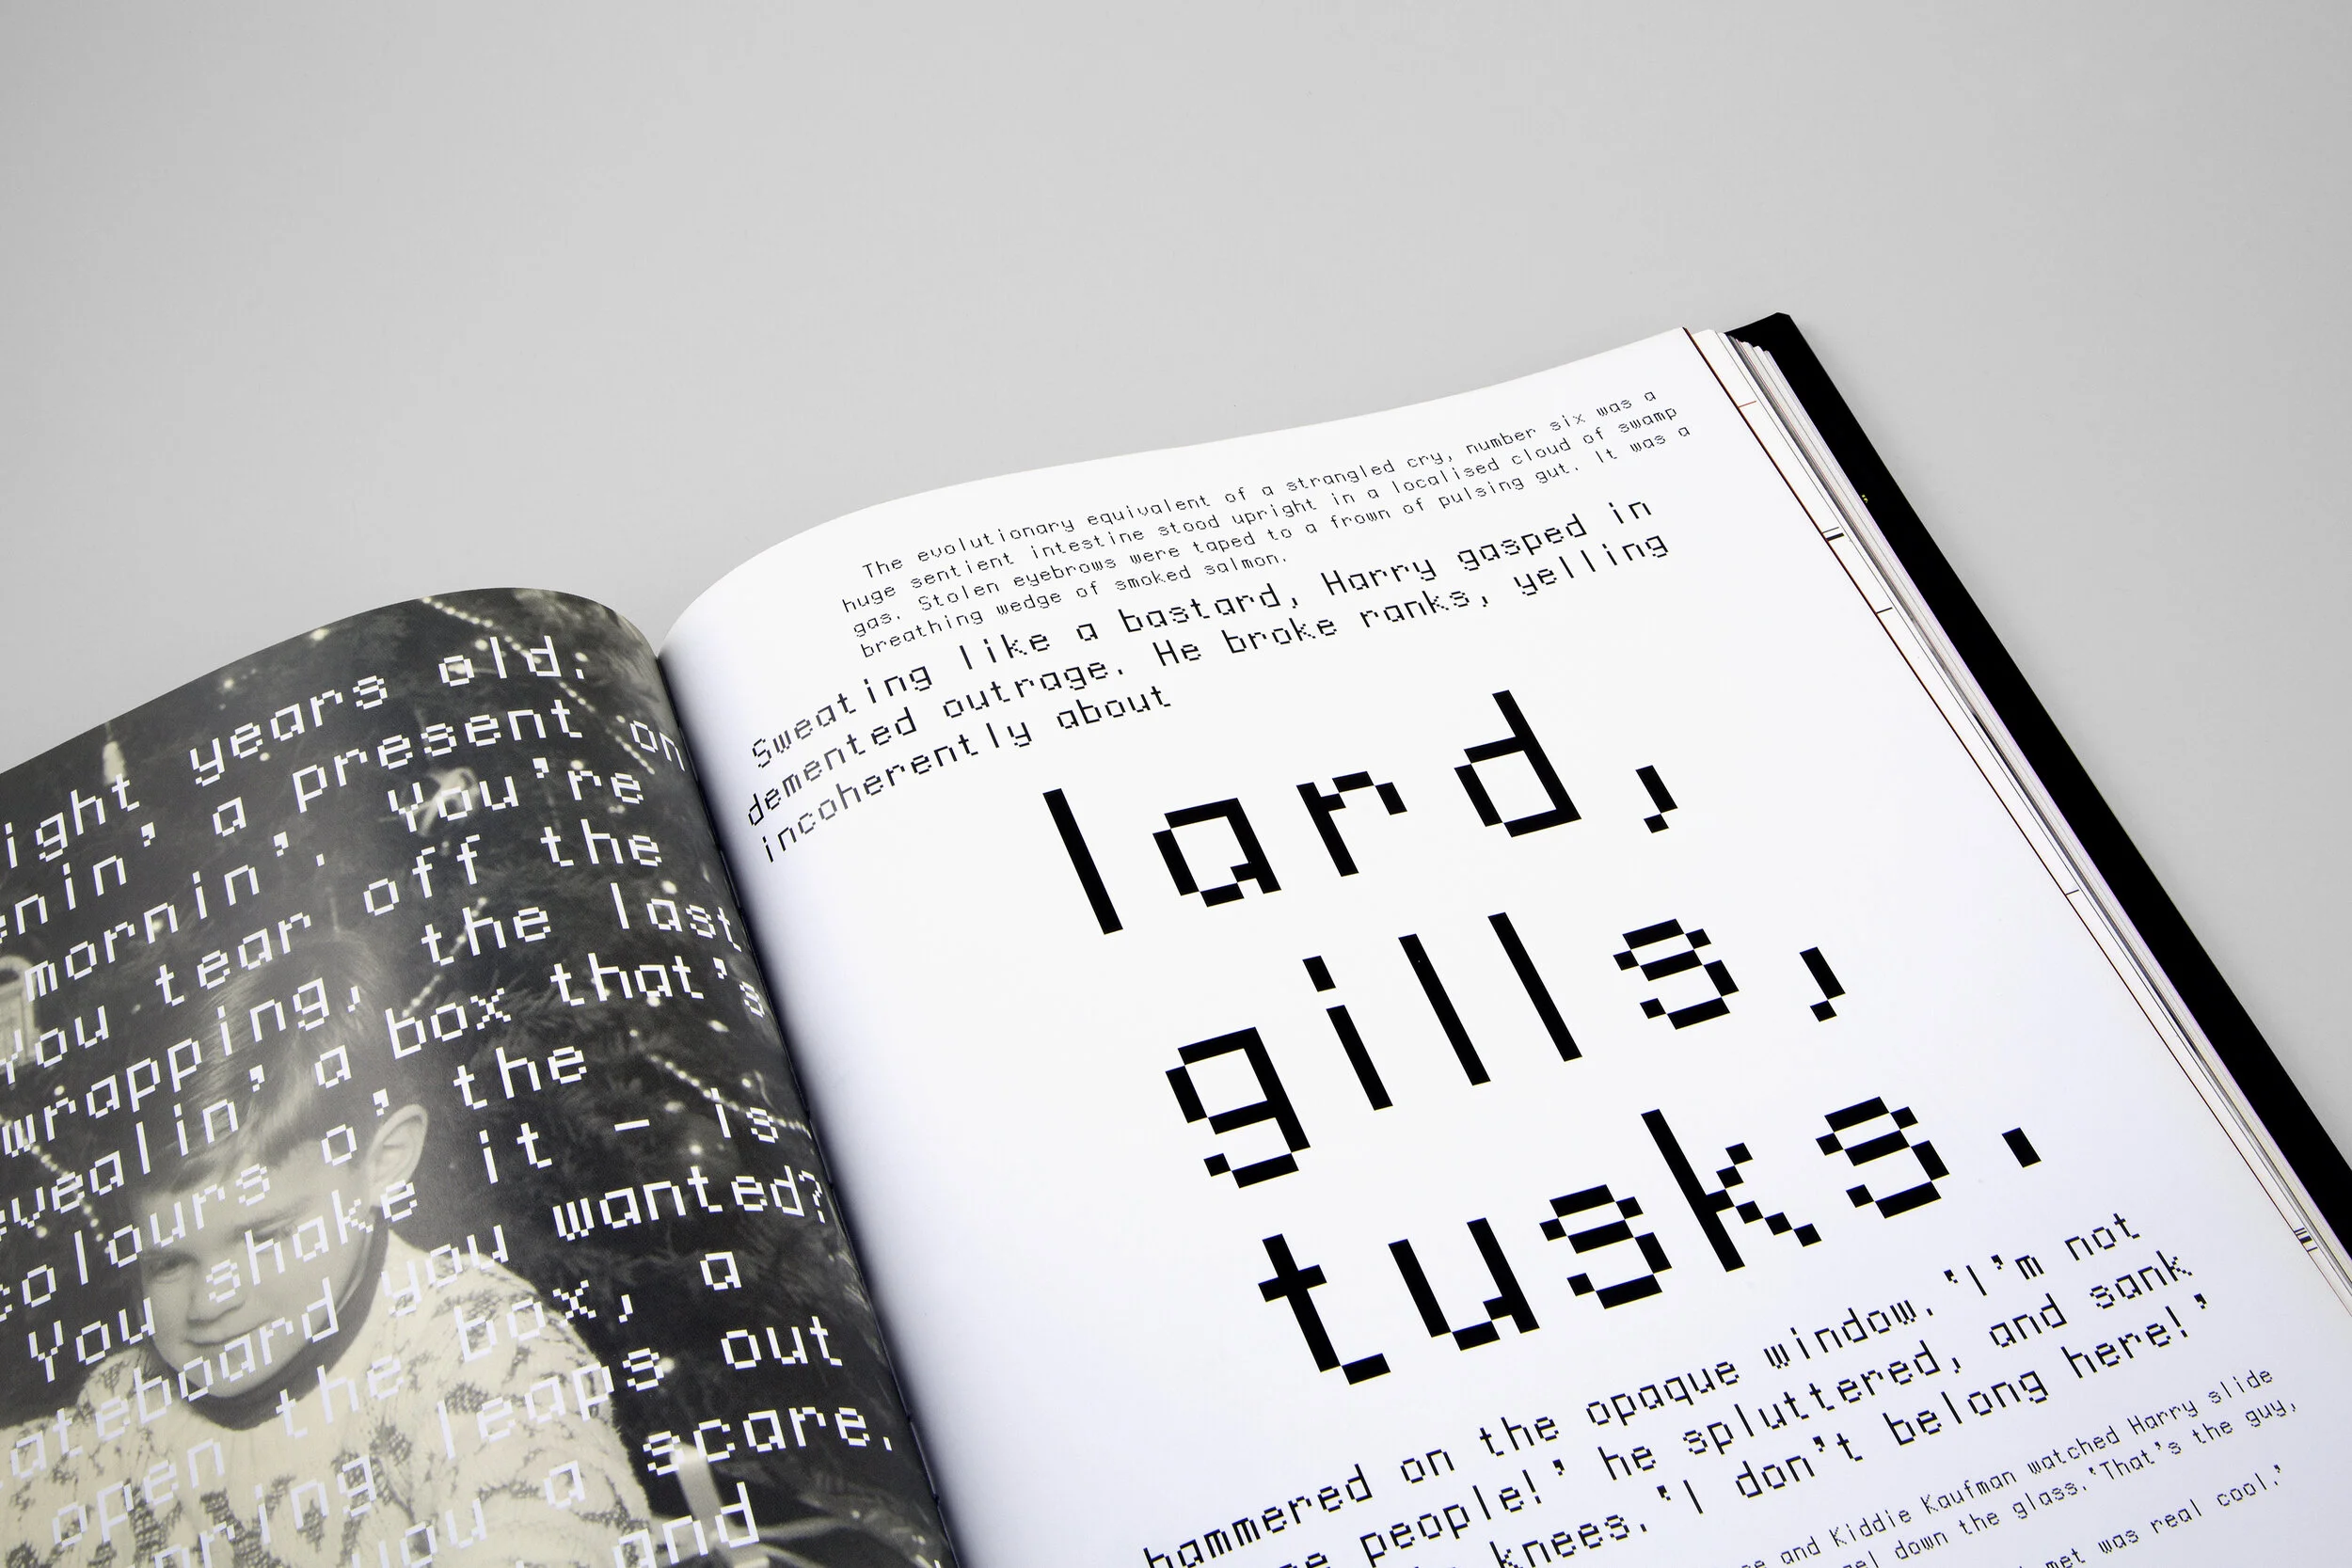 ight years old.
enin' a present on
mornin'. You're
you tear off the
wrapping, the last
evealin' a box that's
colours o' the
You shake it – is
ateboard you wanted?
open the box, a
pring leaps out
you a scare.
and
The evolutionary equivalent of a strangled cry, number six was a
huge sentient intestine stood upright in a localised cloud of swamp
gas. Stolen eyebrows were taped to a frown of pulsing gut. It was a
breathing wedge of smoked salmon.
Sweating like a bastard, Harry gasped in
demented outrage. He broke ranks, yelling
incoherently about
lard,
gills,
tusks.
hammered on the opaque window. 'I'm not
se people!' he spluttered, and sank
knees. 'I don't belong here!'
and Kiddie Kaufman watched Harry slide
down the glass. 'That's the guy,
met was real cool.'